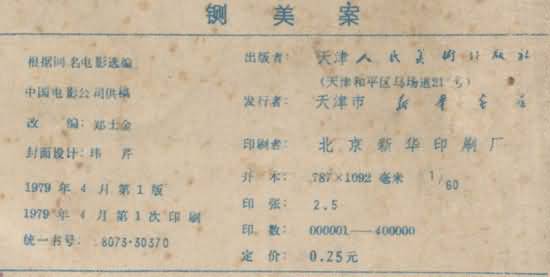 铡美案
根据同名电影选编
中国电影公司供稿
改 编：郑士金
封面设计：玮 芹
1979 年 4 月 第 1 版
1979 年 4 月 第 1 次 印 刷
统一书号：8073·30370
出版者：天津人民美術出版社
（天津和平区马场道21号）
发行者：天津市新華書店
印刷者：北京新华印刷厂
开 本：787×1092 毫米 1/60
印 张：2.5
印 数：000001—400000
定 价：0.25元